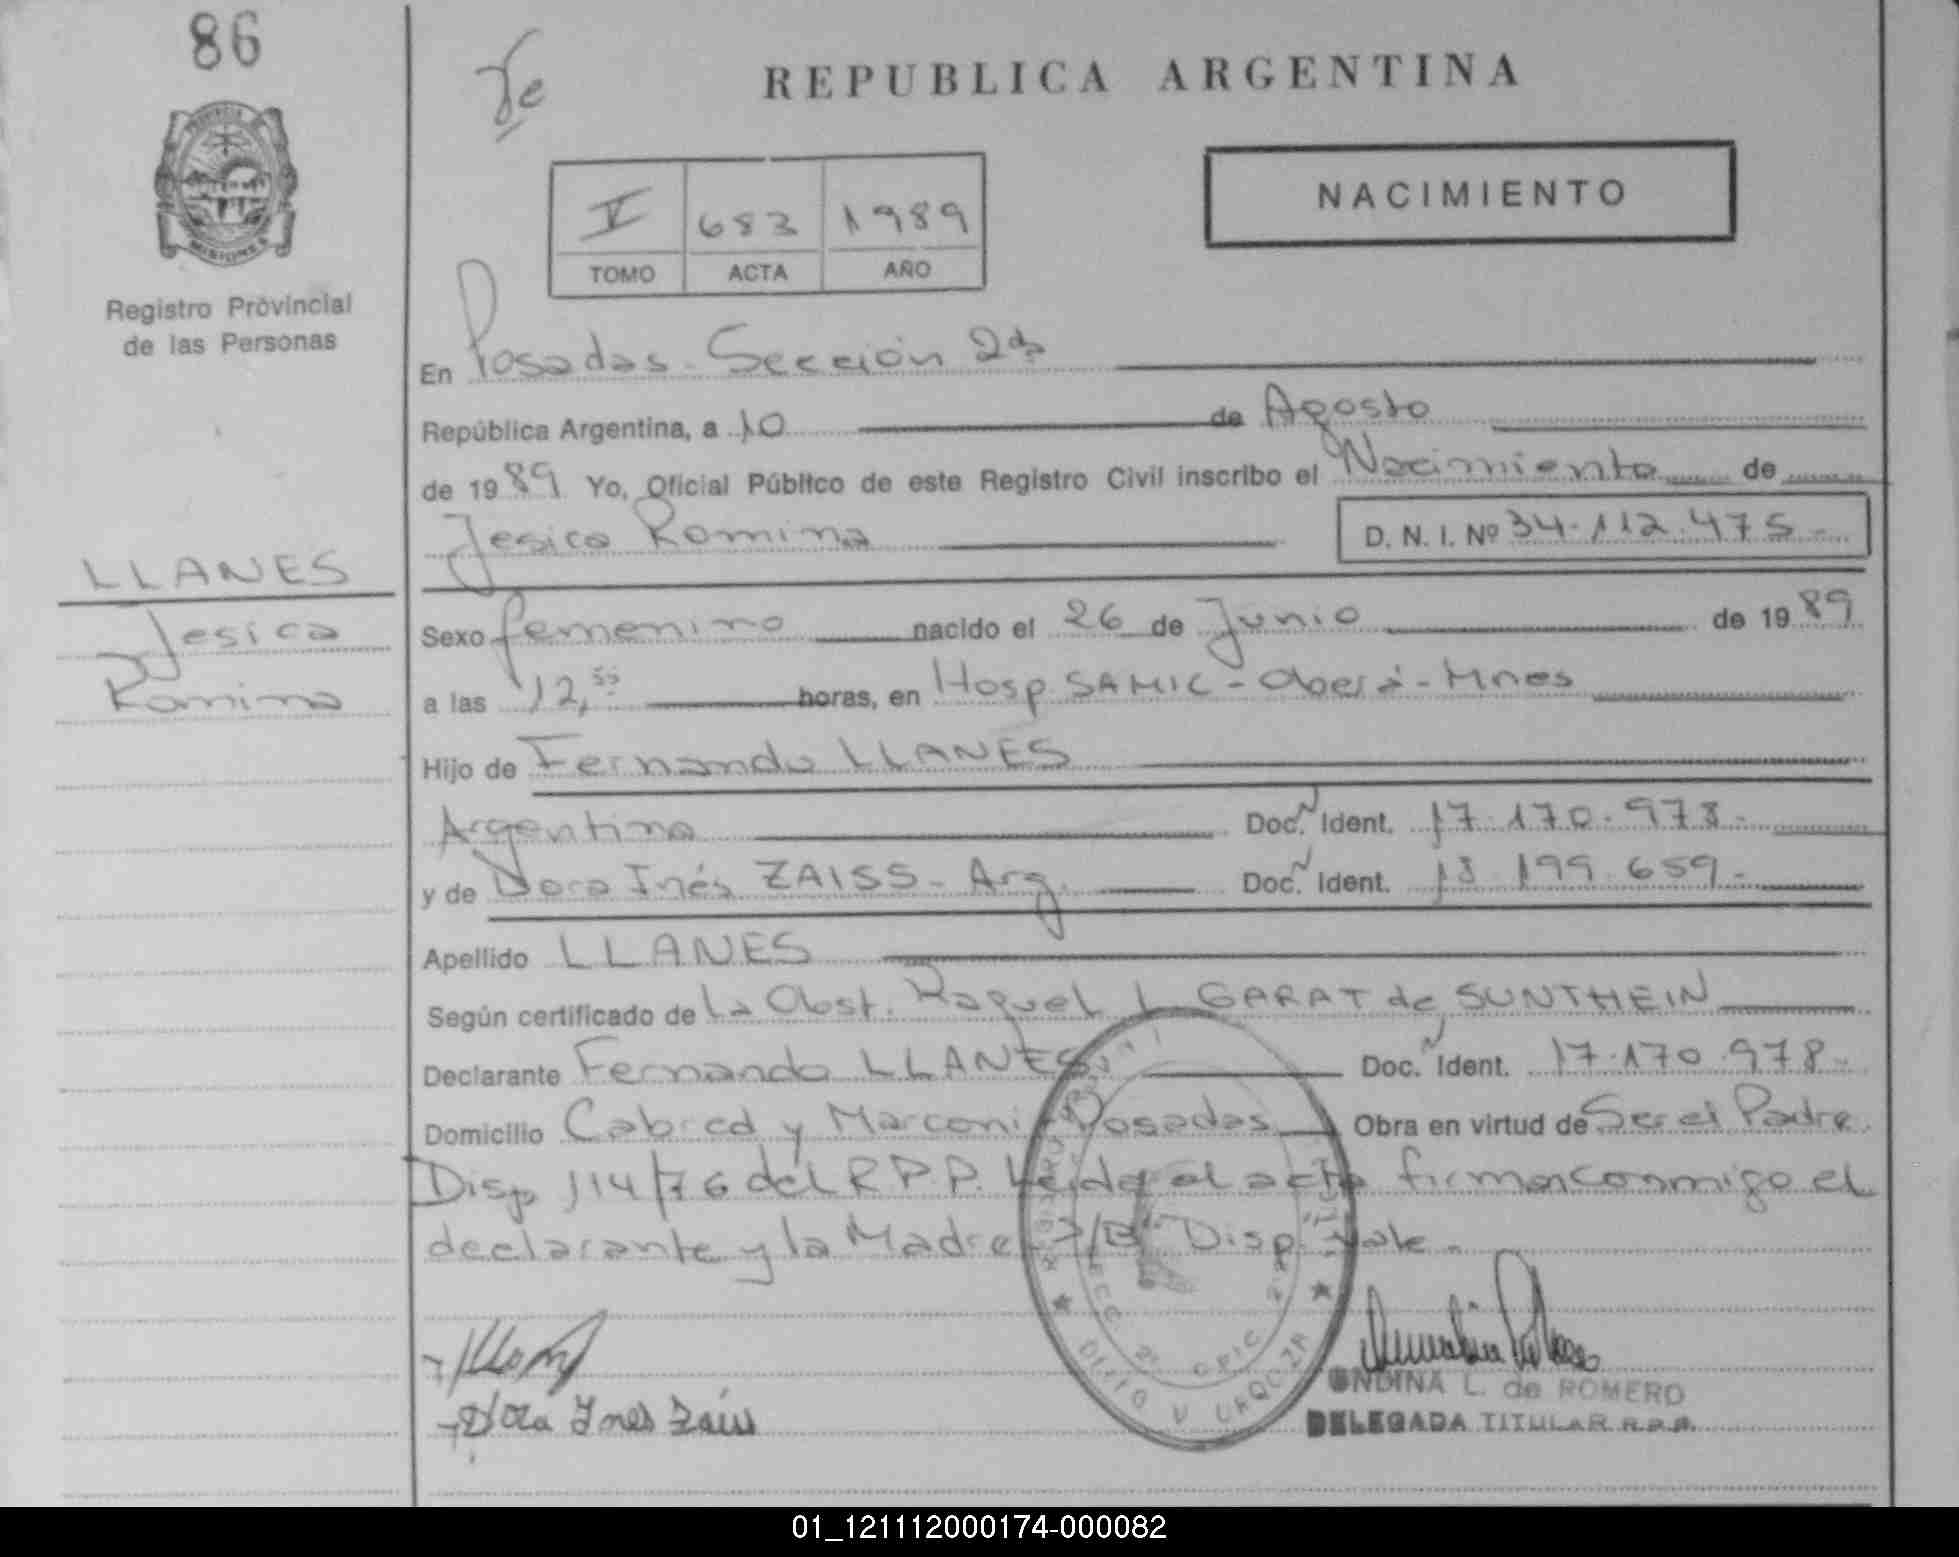 86
Te
REPUBLICA ARGENTINA
PROVINCIA DE
MISIONES
Registro Provincial
de las Personas
V 683 1989
TOMO ACTA AÑO
NACIMIENTO
En Posadas - Sección 2da
República Argentina, a 10 de Agosto
de 1989 Yo, Oficial Público de este Registro Civil inscribo el Nacimiento de
Jesica Romina D. N. I. Nº 34.112.475.-
LLANES
Jesica
Romina
Sexo femenino nacido el 26 de Junio de 1989
a las 12,55 horas, en Hosp. SAMIC - Oberá - Mnes
Hijo de Fernando LLANES
Argentina Doc. N Ident. 17.170.978.-
y de Dora Inés ZAISS - Arg. Doc. N Ident. 13.199.659.-
Apellido LLANES
Según certificado de La Obst. Raquel L GARAT de SUNTHEIN
Declarante Fernando LLANES Doc. N Ident. 17.170.978.-
Domicilio Cabred y Marconi Posadas Obra en virtud de Ser el Padre
Disp 114/76 del R.P.P. Leida el acta firman conmigo el
declarante y la Madre. S/B "Disp" Vale.-
Dora Ines Zaiss
ONDINA L. de ROMERO
DELEGADA TITULAR R.P.P.
01_121112000174-000082